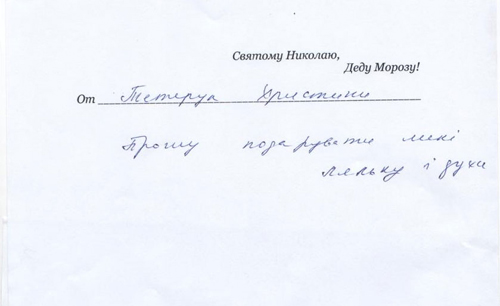 Святому Николаю,
Деду Морозу!
От Тетерук Христини
Прошу подарувати мені
ляльку і духи